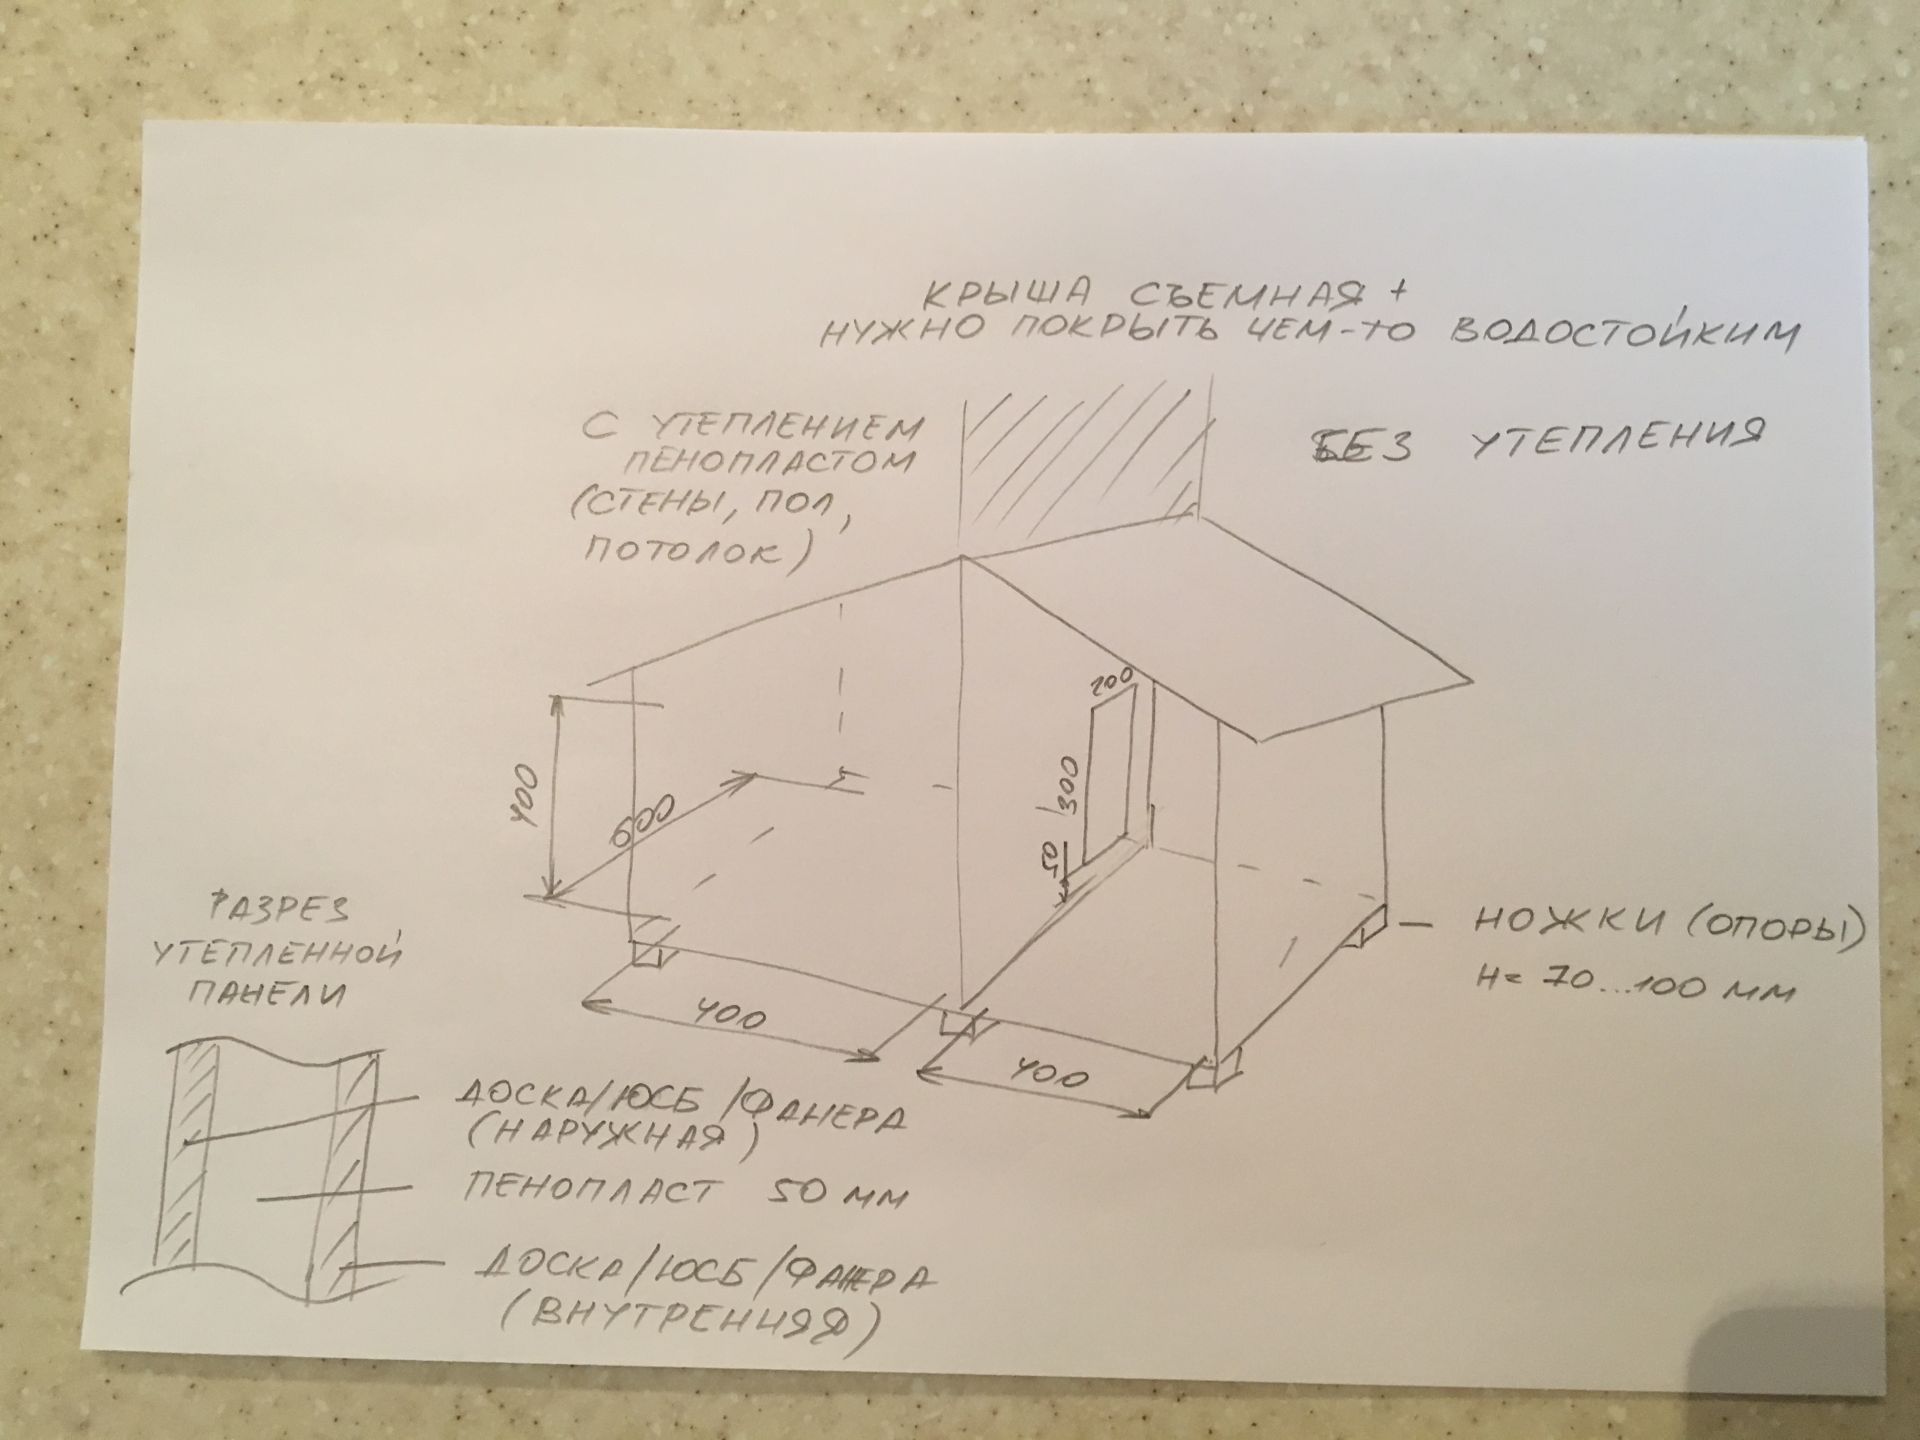 КРЫША СЪЕМНАЯ +
НУЖНО ПОКРЫТЬ ЧЕМ-ТО ВОДОСТОЙКИМ
С УТЕПЛЕНИЕМ
ПЕНОПЛАСТОМ
(СТЕНЫ, ПОЛ,
ПОТОЛОК)
БЕЗ УТЕПЛЕНИЯ
400
600
200
300
50
400
400
НОЖКИ (ОПОРЫ)
H= 70...100 ММ
РАЗРЕЗ
УТЕПЛЕННОЙ
ПАНЕЛИ
ДОСКА/ЮСБ/ФАНЕРА
(НАРУЖНАЯ)
ПЕНОПЛАСТ 50 ММ
ДОСКА/ЮСБ/ФАНЕРА
(ВНУТРЕННЯЯ)